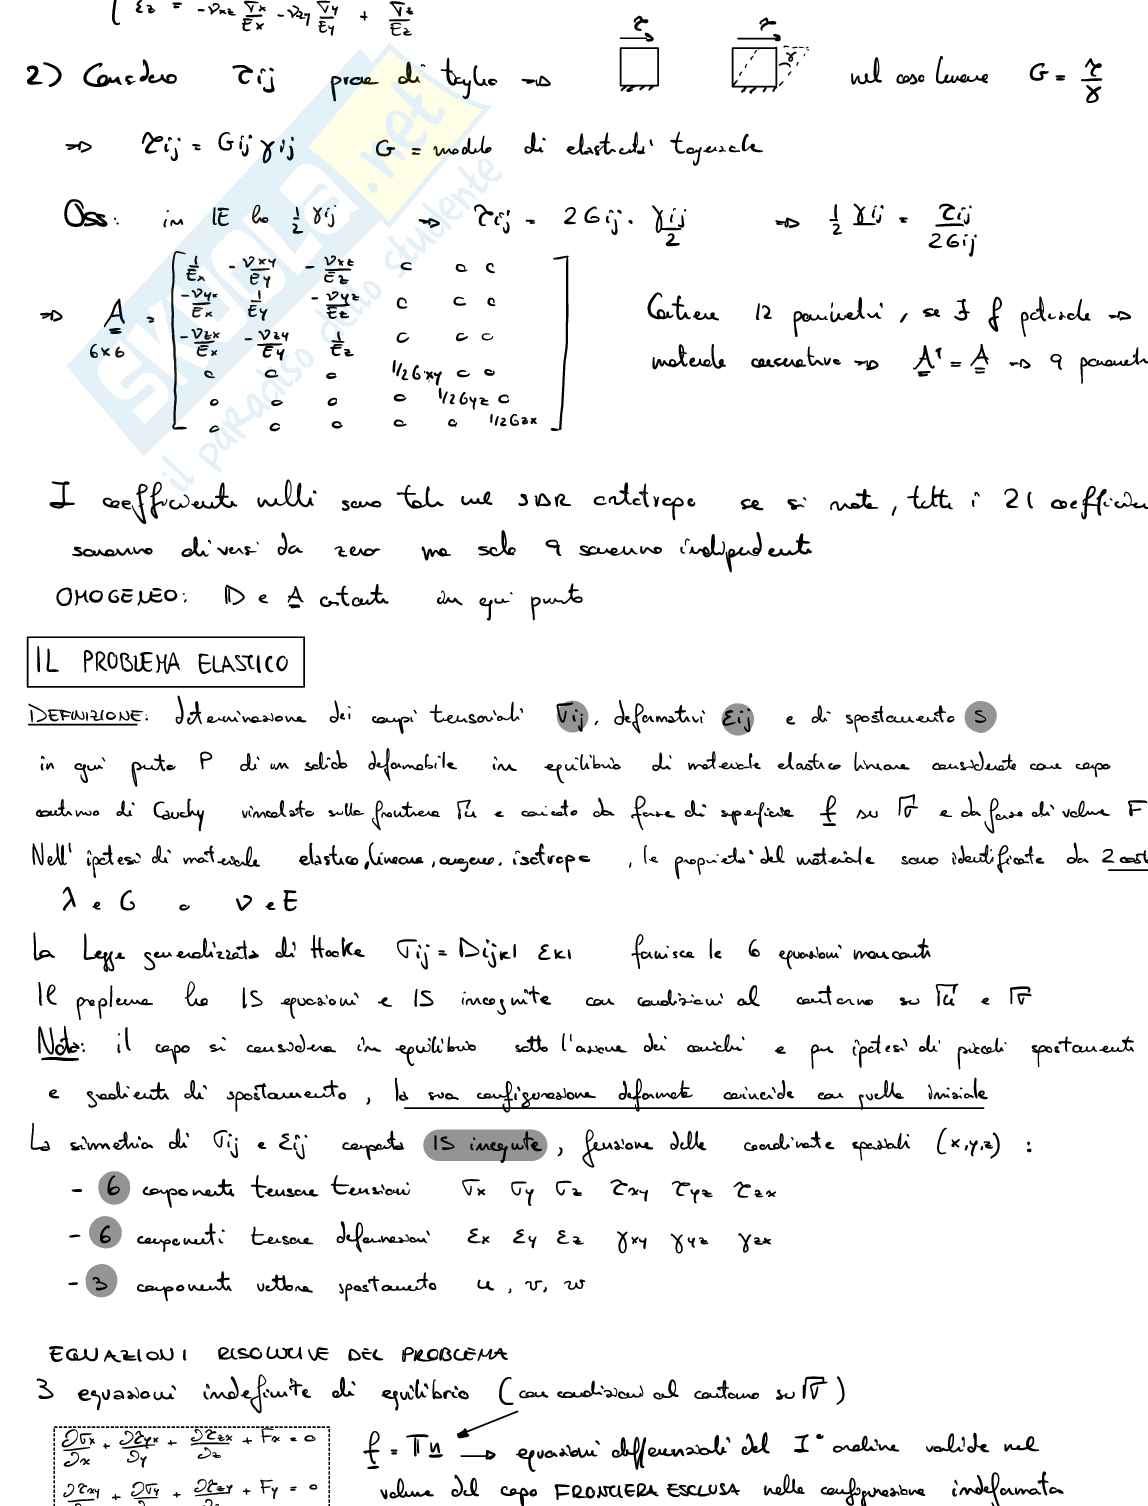 εz = -νxz σx/Ex - νzy σy/Ey + σz/Ez
2) Considero τij prove di taglio => τ τ γ nel caso lineare G = τ/γ
=> τij = Gij γij G = modulo di elasticità tagenziale
Oss: in IE ho 1/2 γij => τij = 2Gij · γij/2 => 1/2 γij = τij/2Gij
1/Ex -νxy/Ey -νxz/Ez 0 0 0
-νyx/Ex 1/Ey -νyz/Ez 0 0 0
=> A 6x6 = -νzx/Ex -νzy/Ey 1/Ez 0 0 0
0 0 0 1/2Gxy 0 0
0 0 0 0 1/2Gyz 0
0 0 0 0 0 1/2Gzx
Contiene 12 parametri, se ∃ f potenziale =>
materiale conservativo => Aᵀ = A => 9 parametri
I coefficienti nulli sono tali nel SDR ortotropo se si ruota, tutti i 21 coefficien
saranno diversi da zero ma solo 9 saranno indipendenti
OMOGENEO: D e A costanti in ogni punto
IL PROBLEMA ELASTICO
DEFINIZIONE: determinazione dei campi tensoriali σij, deformativi εij e di spostamento S
in ogni punto P di un solido deformabile in equilibrio di materiale elastico lineare considerato come corpo
continuo di Cauchy vincolato sulla frontiera Γu e caricato da forze di superficie f su Γσ e da forze di volume F
Nell' ipotesi di materiale elastico, lineare, omogeneo, isotropo, le proprietà del materiale sono identificate da 2 cost
λ e G o ν e E
La Legge generalizzata di Hooke σij = Dijkl εkl fornisce le 6 equazioni mancanti
Il problema ha 15 equazioni e 15 incognite con condizioni al contorno su Γu e Γσ
Nota: il corpo si considera in equilibrio sotto l'azione dei carichi e per ipotesi di piccoli spostamenti
e gradienti di spostamento, la sua configurazione deformata coincide con quella iniziale
La simmetria di σij e εij comporta 15 incognite, funzione delle coordinate spaziali (x,y,z) :
- 6 componenti tensore tensioni σx σy σz τxy τyz τzx
- 6 componenti tensore deformazioni εx εy εz γxy γyz γzx
- 3 componenti vettore spostamento u, v, w
EQUAZIONI RISOLUTIVE DEL PROBLEMA
3 equazioni indefinite di equilibrio (con condizioni al contorno su Γσ)
∂σx/∂x + ∂τyx/∂y + ∂τzx/∂z + Fx = 0
f = T n -> equazioni differenziali del I° ordine valide nel
∂τxy + ∂σy + ∂τzy + Fy = 0
volume del corpo FRONTIERA ESCLUSA nella configurazione indeformata
SKUOLA.net
il paradiso dello studente